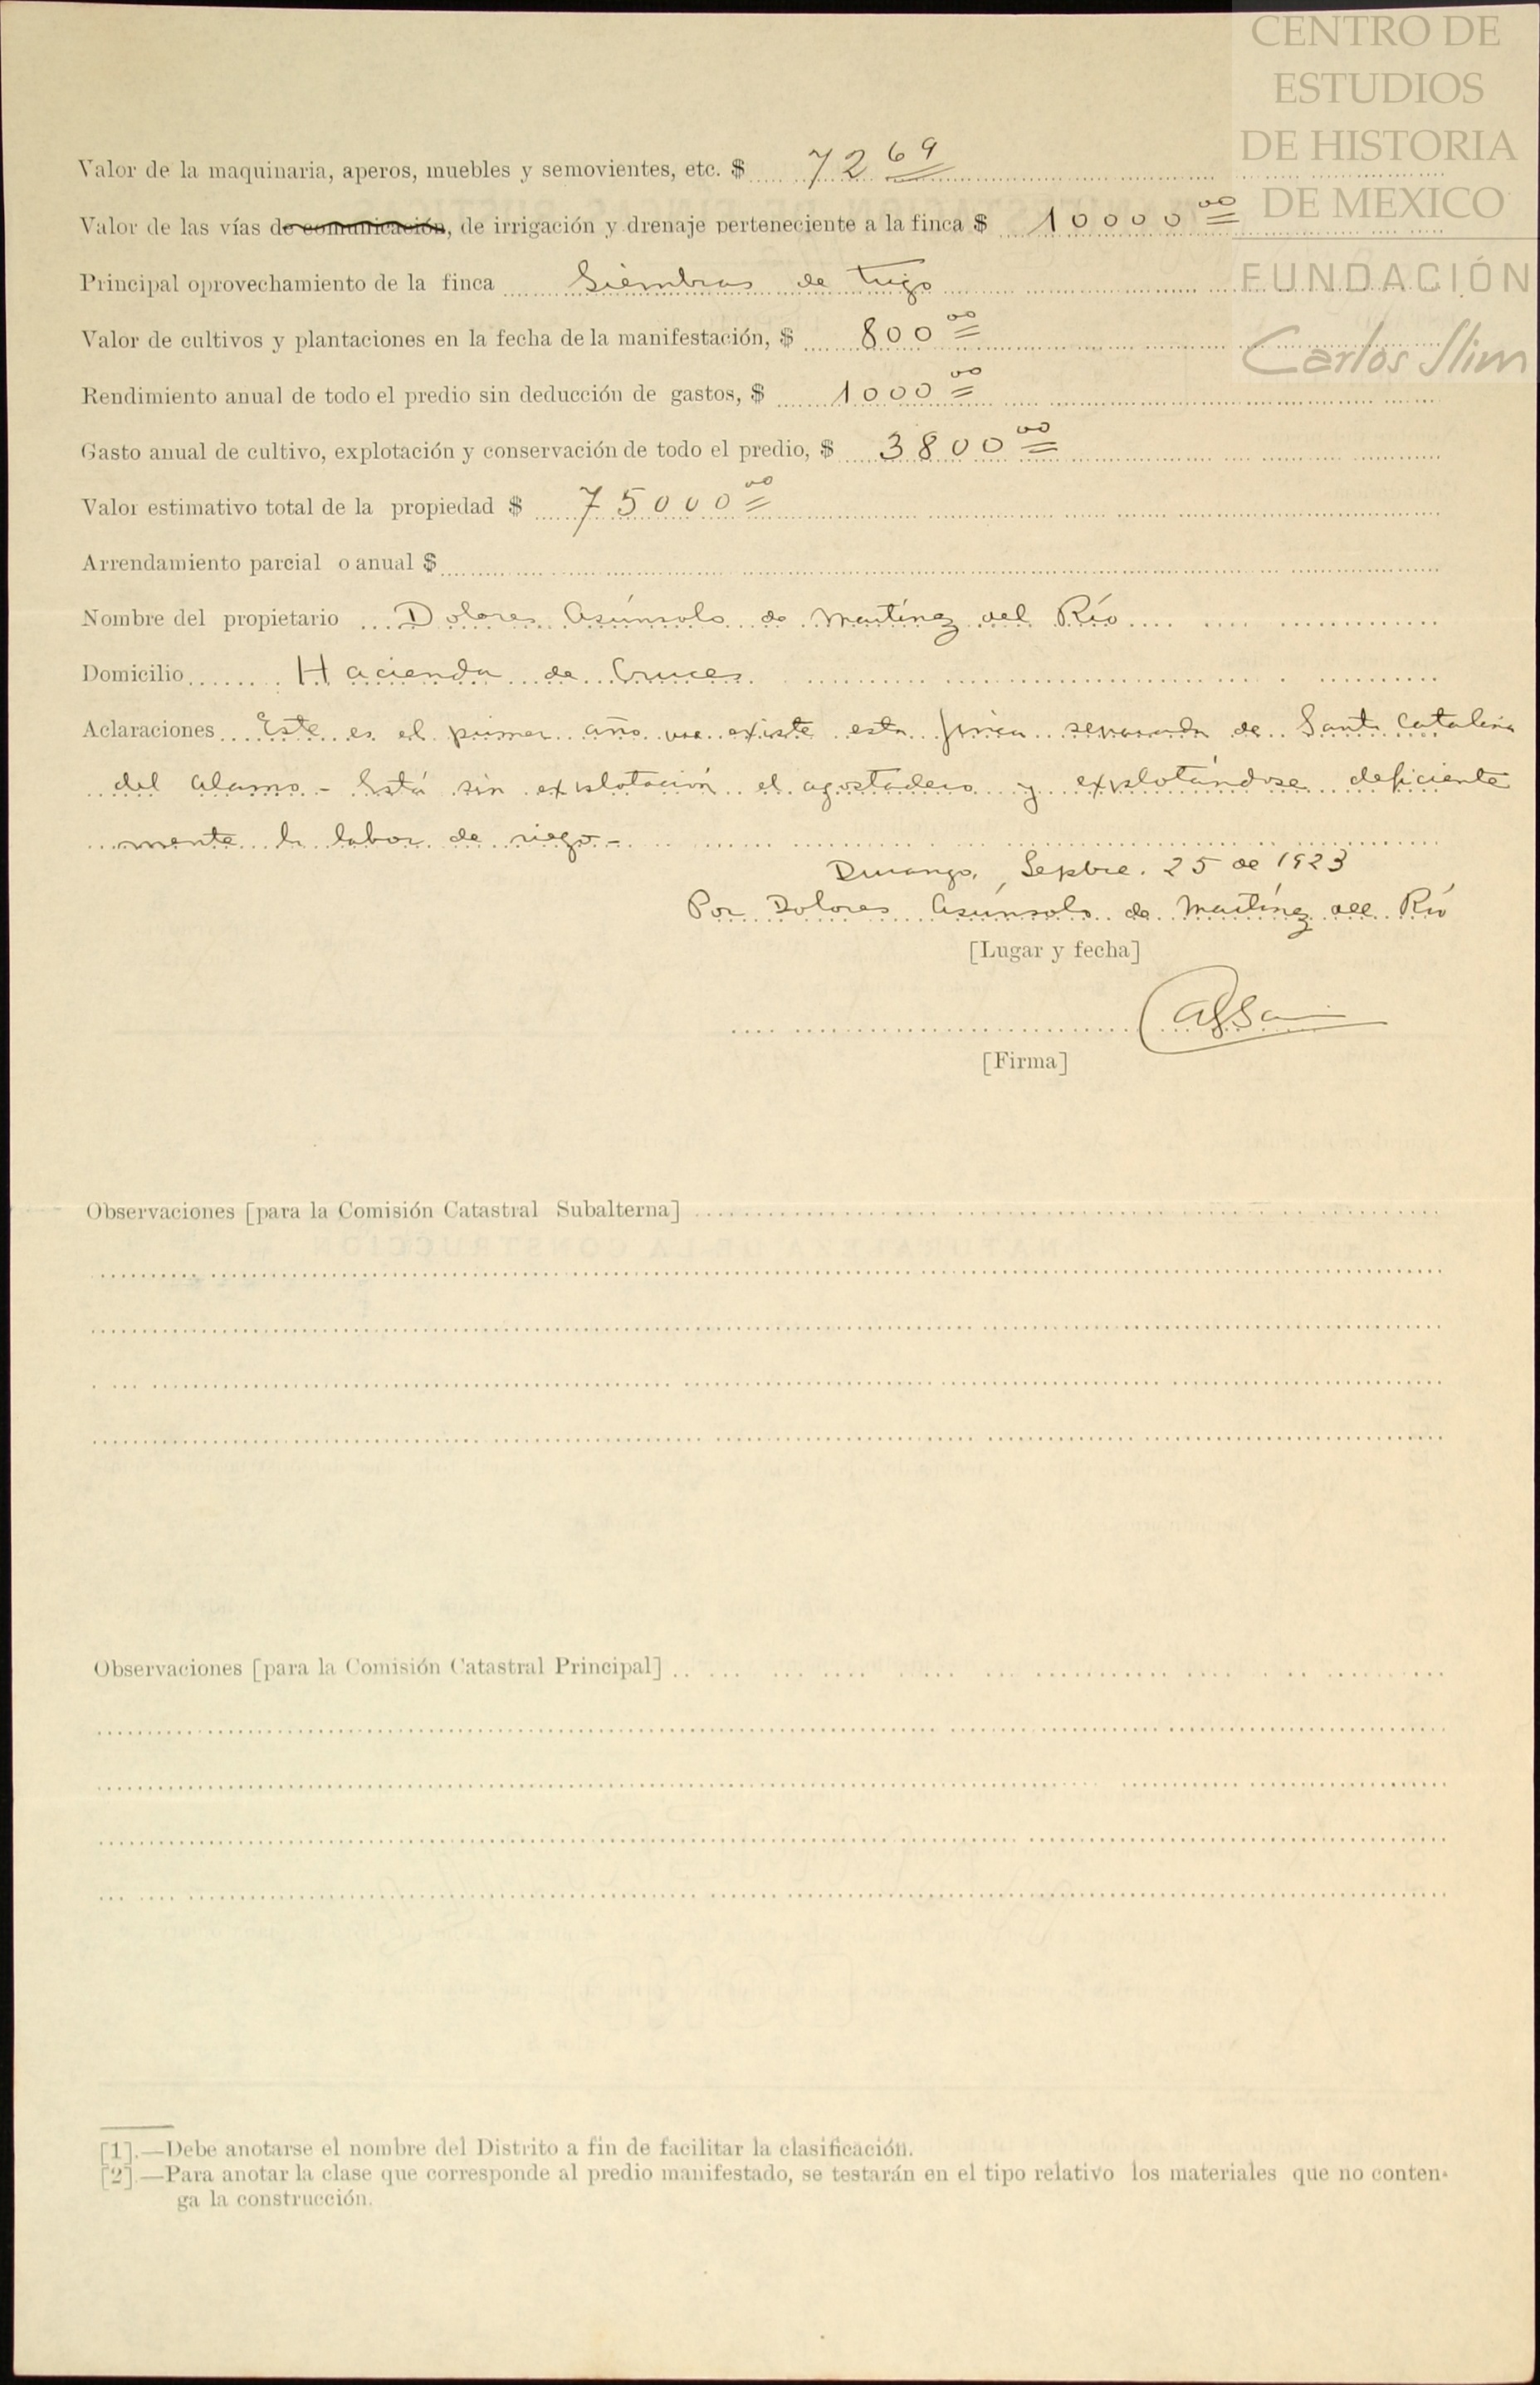 CENTRO DE
ESTUDIOS
DE HISTORIA
DE MEXICO
FUNDACIÓN
Carlos Slim
Valor de la maquinaria, aperos, muebles y semovientes, etc. $ 72 69
Valor de las vías de comunicación, de irrigación y drenaje perteneciente a la finca $ 10000 00
Principal oprovechamiento de la finca Siembras de trigo
Valor de cultivos y plantaciones en la fecha de la manifestación, $ 800 00
Rendimiento anual de todo el predio sin deducción de gastos, $ 1000 00
Gasto anual de cultivo, explotación y conservación de todo el predio, $ 3800 00
Valor estimativo total de la propiedad $ 75000 00
Arrendamiento parcial o anual $
Nombre del propietario Dolores Asúnsolo de Martínez del Río
Domicilio Hacienda de Cruces
Aclaraciones Este es el primer año que existe esta finca separada de Santa Catalina
del Alamo - Está sin explotación el agostadero y explotándose deficiente
mente la labor de riego -
Durango, Sepbre. 25 de 1923
Por Dolores Asúnsolo de Martínez del Río
[Lugar y fecha]
[Firma]
Observaciones [para la Comisión Catastral Subalterna]
Observaciones [para la Comisión Catastral Principal]
[1].—Debe anotarse el nombre del Distrito a fin de facilitar la clasificación.
[2].—Para anotar la clase que corresponde al predio manifestado, se testarán en el tipo relativo los materiales que no conten-
ga la construcción.